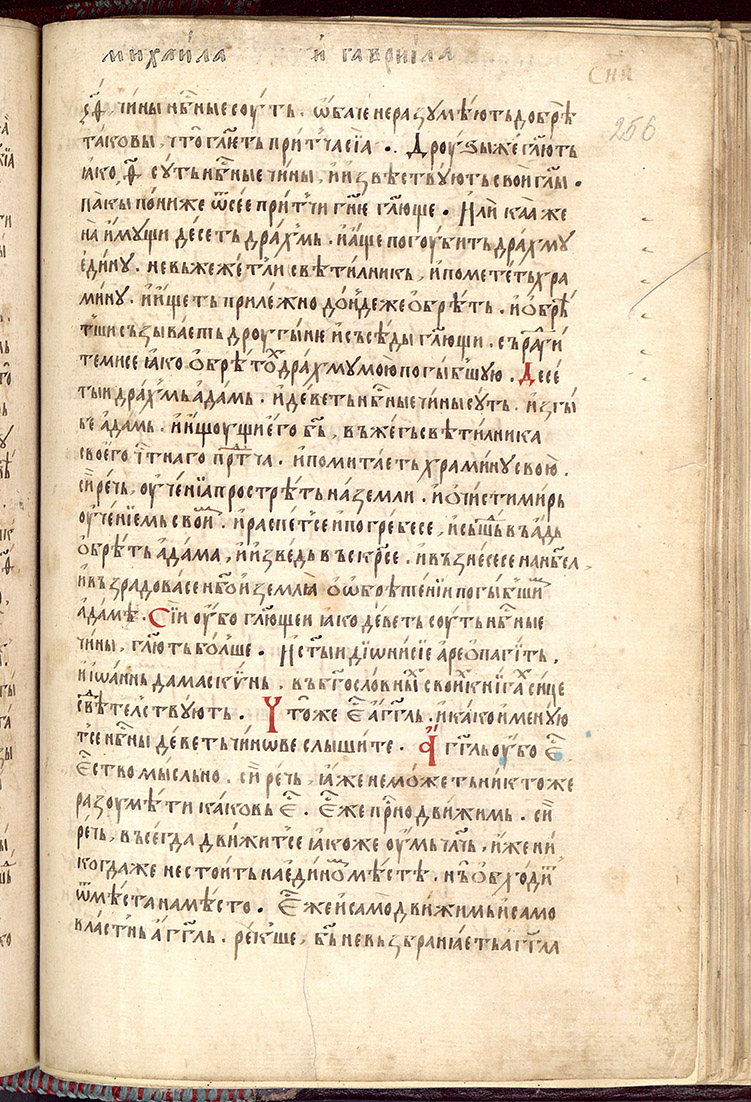 михаи́ла и́ гаври́ила
сни
256
ч҃ѳ чи́ны нб҃ные соу́ть. ѡ҆ба́че неразꙋмѣ́ють до́брѣ
такⷪ҇вы, что̀ гл҃еть при́тча сїа̀. Дроуѕы́ же гл҃ють
ꙗ҆́ко ѳ҃ сꙋ́ть нб҃ные чи́ны, и҆ и҆звѣствꙋ́ють свои̏ гл҃ы.
па́кы пони́же ѿ се́е при́тчи гн҃ѥ гл҃юще. И҆лѝ каа̀ же
на̀ и҆мꙋ́щи де́сеть дра́хмь. и҆ а҆́ще погоу́бить дра́хмꙋ
е҆ди́нꙋ. не въжеже́ть ли свѣти́лникь, и҆ помете́ть хра
ми́нꙋ. и҆ и҆́щеть прилѣ́жно до́ндеже ѻ҆брѣ́ть. и҆ ѻ҆брѣ́
тши съзыва́еть дроугы́ніе и҆ съсѣ́ды гл҃ющи. съра́дꙋи
темисе ꙗ҆́ко ѻ҆брѣто́х дра́хмꙋ мою̀ погы́бшꙋю. Десе
ты́и дра́хмь а҆да́мь. и҆ де́веть нб҃ные чи́ны сꙋ́ть. и҆згы́
бе а҆да́мь. и҆ и҆́щоущи е҆го̀ бь҃, въже́гь свѣти́лника
своего̀ чⷭ҇тнаго прⷣтча. и҆ помита́еть хра́минꙋ свою̀.
си́ рѣчь, оу҆че́нїа прострѣ́ть на землѝ. и҆ ѻ҆чи́сти ми́рь
оу҆че́нїемь свои́мь. и҆ распе́тсе и҆ погре́бесе, и҆ съшⷣь въ а҆́дь
ѻ҆брѣ́ть а҆да́ма, и҆ и҆зве́дь въскрⷭ҇се. и҆ възне́сесе на нб҃ел,
и҆ възра́довасе нб҃о и҆ землꙗ̀ ѻ҆ ѻ҆брѣте́нїи погы́бшим
а҆да́мѣ. Сїи оу҆́бо гл҃ющеи ꙗ҆́ко де́веть соу́ть нб҃ные
чи́ны, гл҃ють бо́лше. И҆ ст҃ы́и дїѡни́сїе а҆реѻпаги́ть,
и҆ і҆ѡа́ннь дамаски́нь, въ бг҃осло́вных свои́х кни́гах си́це
свѣⷣтелствꙋ́ють. Что́ же е҆́ⷭ а҆́гг҃ль. и҆ ка́ко и҆менꙋю
тсе нб҃ны де́веть чи́нѡве слы́шите. А҆́гг҃ль оу҆́бо е҆́ⷭ
е҆́ⷭство мы́сльно. си́ рѣчь, ꙗ҆́же не мо́жеть ни́ктоже
разоумѣ́ти ка́ковь е҆́ⷭ. е҆́ⷭ же при́сно дви́жимь. си́
рѣчь, въсегда̀ дви́житсе ꙗ҆́коже оу҆́мь чл҃чь, и҆́же ни
когда́же не стои́ть на еди́ном мѣ́стѣ. нъ̀ ѻ҆бхо́дит
ѿ мѣ́ста на мѣ́сто. е҆́ⷭ же и҆ самодви́жимь и҆ само
вла́стнь а҆́гг҃ль. ре́кше, бь҃ не възбранꙗ́еть а҆́гг҃ла